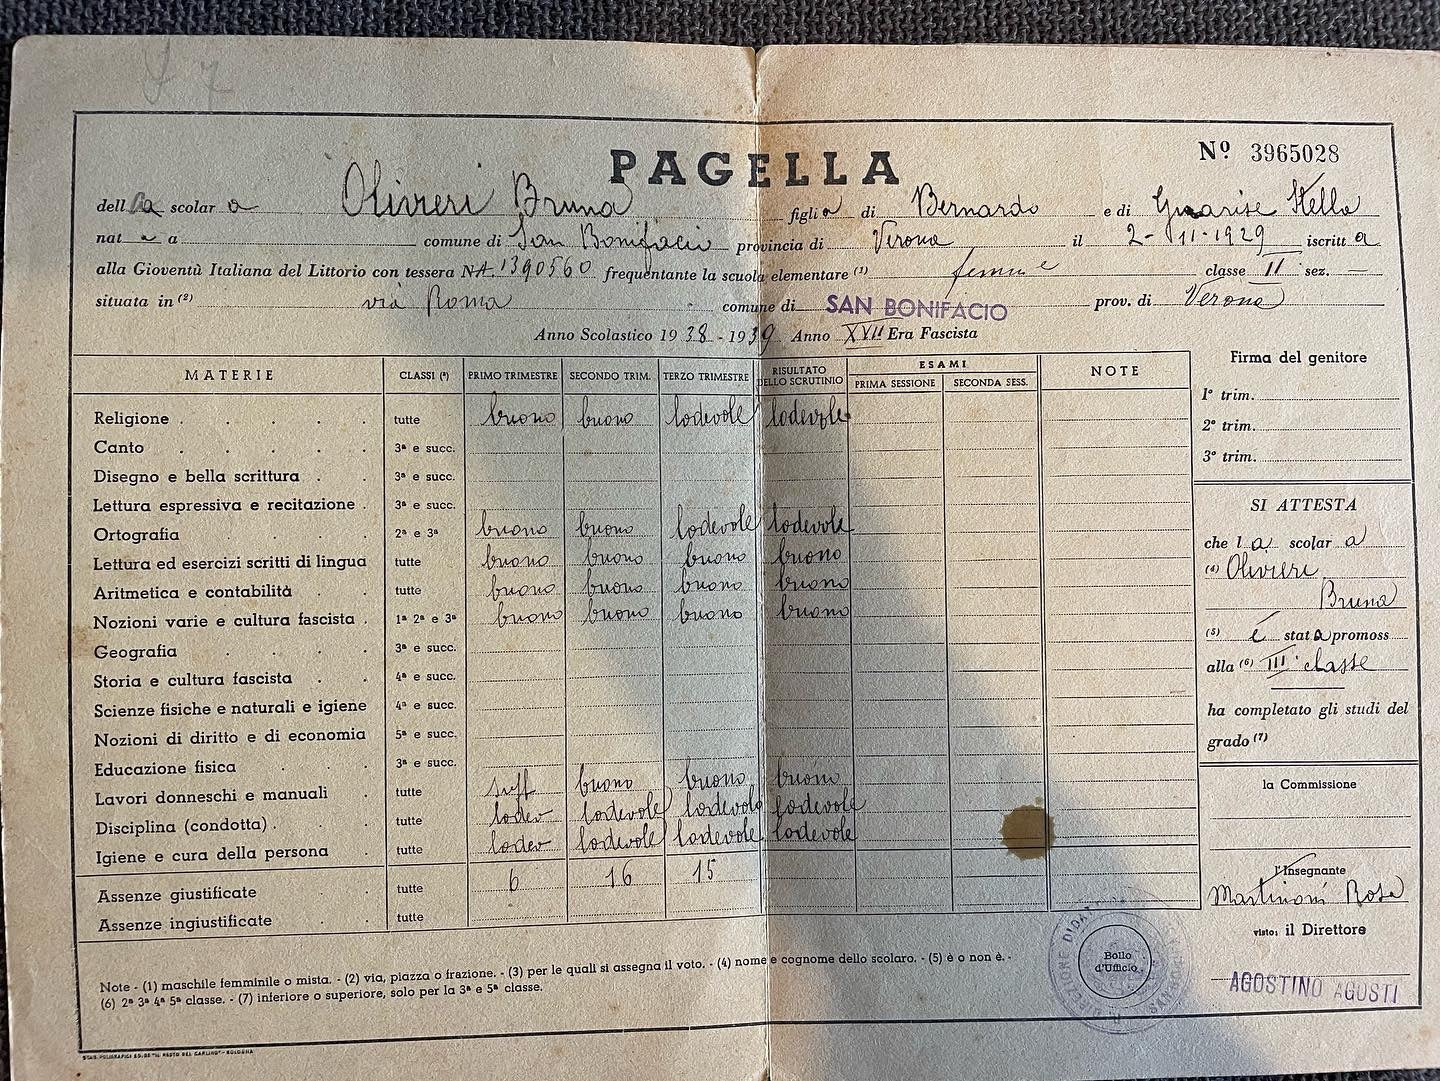 PAGELLA
Nº 3965028
della scolara Olivieri Bruna figlia di Bernardo e di Guarise Stella
nata a comune di San Bonifacio provincia di Verona il 2-11-1929 iscritta
alla Gioventù Italiana del Littorio con tessera N. 1390560 frequentante la scuola elementare (1) classe II sez. —
situata in (2) via Roma comune di SAN BONIFACIO prov. di Verona
Anno Scolastico 1938-1939 Anno XVII Era Fascista
MATERIE CLASSI (³) PRIMO TRIMESTRE SECONDO TRIM. TERZO TRIMESTRE RISULTATO DELLO SCRUTINIO ESAMI PRIMA SESSIONE SECONDA SESS. NOTE
Religione tutte buono buono lodevole lodevole
Canto 3ª e succ.
Disegno e bella scrittura 3ª e succ.
Lettura espressiva e recitazione 3ª e succ.
Ortografia 2ª e 3ª buono buono lodevole lodevole
Lettura ed esercizi scritti di lingua tutte buono buono buono buono
Aritmetica e contabilità tutte buono buono buono buono
Nozioni varie e cultura fascista 1ª 2ª e 3ª buono buono buono buono
Geografia 3ª e succ.
Storia e cultura fascista 4ª e succ.
Scienze fisiche e naturali e igiene 4ª e succ.
Nozioni di diritto e di economia 5ª e succ.
Educazione fisica 3ª e succ.
Lavori donneschi e manuali tutte suff buono buono buono
Disciplina (condotta) tutte lodev lodevole lodevole lodevole
Igiene e cura della persona tutte lodev lodevole lodevole lodevole
Assenze giustificate tutte 6 16 15
Assenze ingiustificate tutte
Note - (1) maschile femminile o mista. - (2) via, piazza o frazione. - (3) per le quali si assegna il voto. - (4) nome e cognome dello scolaro. - (5) è o non è. -
(6) 2ª 3ª 4ª 5ª classe. - (7) inferiore o superiore, solo per la 3ª e 5ª classe.
STAB. POLIGRAFICI ED. DE "IL RESTO DEL CARLINO" - BOLOGNA
Firma del genitore
1º trim.
2º trim.
3º trim.
SI ATTESTA
che la scolara
(4) Olivieri
Bruna
(5) è stata promoss
alla (6) III classe
ha completato gli studi del
grado (7)
la Commissione
l'Insegnante
Martinoni Rosa
visto: il Direttore
AGOSTINO AGUSTI
Bollo
d'Ufficio